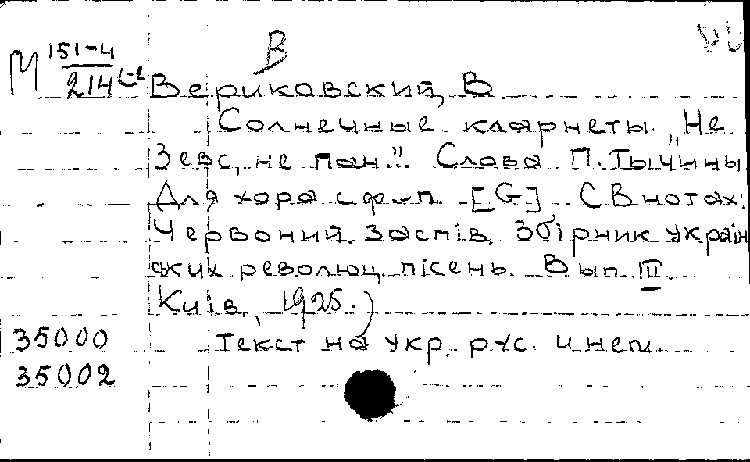 В
М 151-4
214
Вериковский, В
Солнечные кларнеты. „Не
Зевс, не пан..." Слова П. Тычины
Для хора с ф-п. [G]. (В нотах:
Червоний заспів. Збірник україн
ських революц. пісень. Вып. III.
Київ, 1925.)
35000 Текст на укр. рус. и нем.
35002